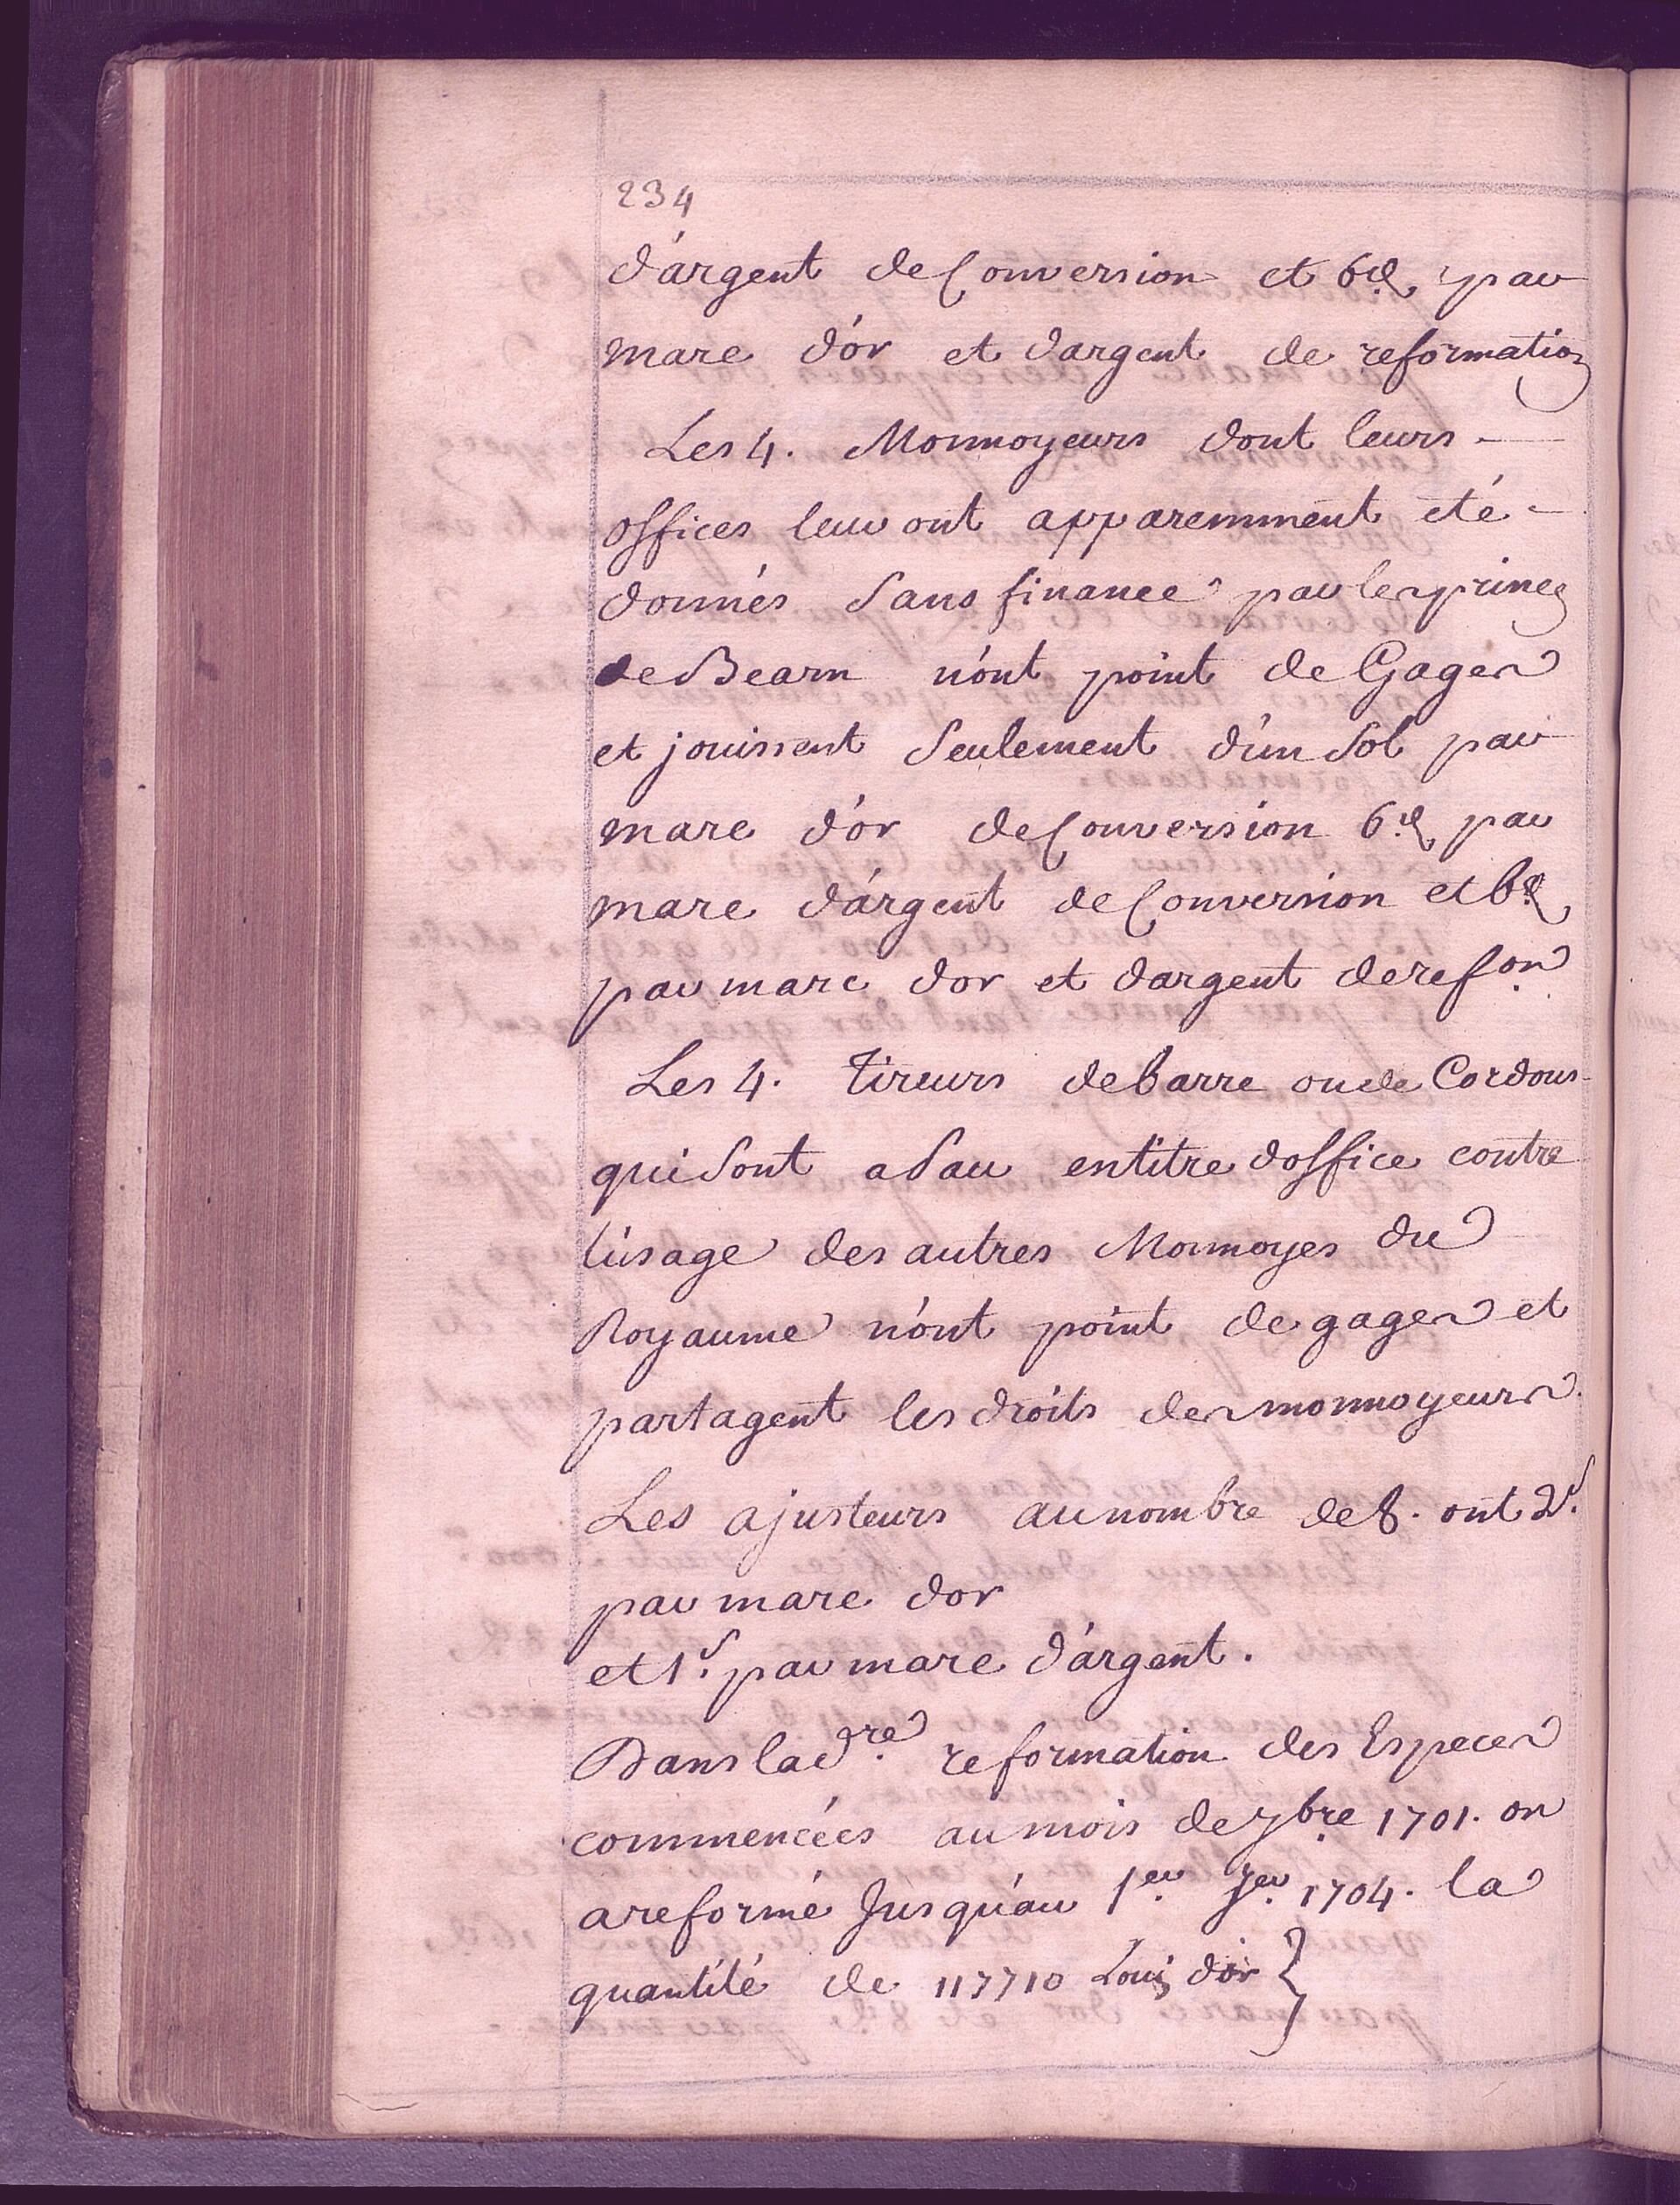 234
d'argent de Conversion et 6d. par
marc d'or et dargent de reformation
Les 4. Monnoyeurs dont leurs
offices leur ont apparemment eté
donnés Sans finance par les princes
de Bearn n'ont point de Gages
et jouissent Seulement d'un Sol par
marc d'or de Conversion 6.d par
marc d'argent de Conversion et 6.d
par marc dor et dargent de ref.on
Les 4. tireurs de barre ou de Cordons
qui Sont a Pau en titre doffice contre
l'usage des autres Monnoyes du
Royaume n'ont point de gages et
partagent les droits des monnoyeurs.
Les ajusteurs au nombre de 8. ont 2s.
par marc dor
et 1s. par marc d'argent.
Dans la d.re reformation des Especes
commencées au mois de 7bre 1701. on
a reformé Jusqu'au 1.er J.er 1704. la
quantité de 117710 Louis d'or }